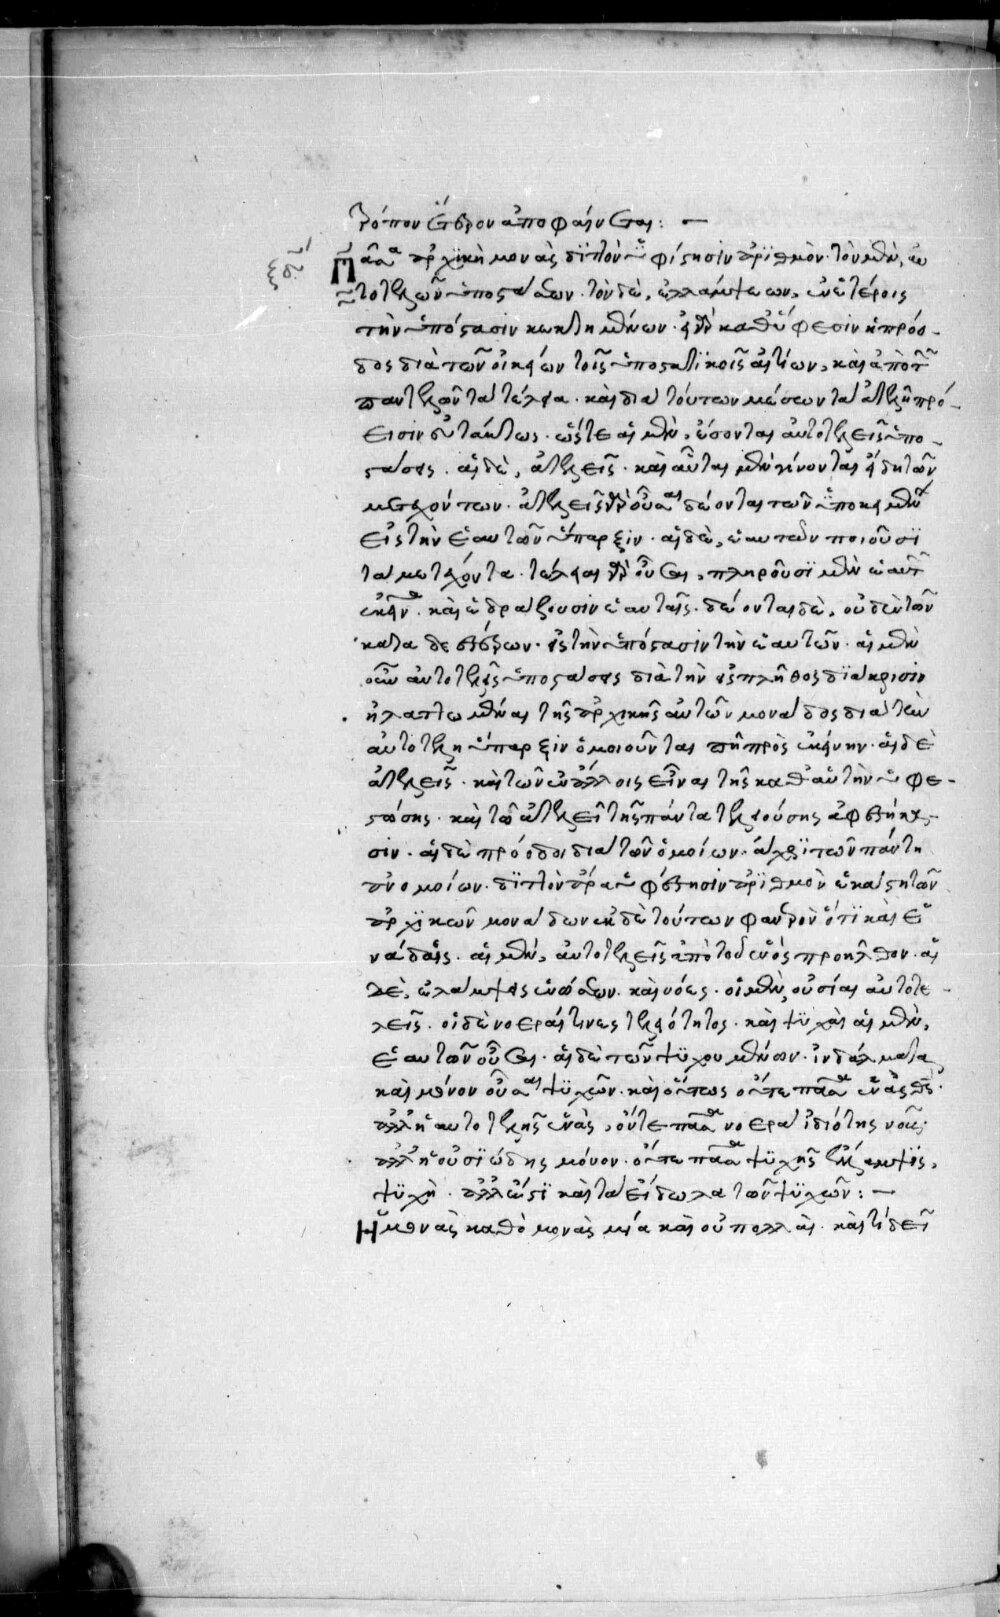 τρόπον ἕτερον ἀποφαίνεται: —
ξδ΄
Πᾶσα ἀρχικὴ μονὰς διττὸν ὑφίστησιν ἀριθμὸν· τὸν μὲν, αὐ
τοτελῶν ὑποστάσεων· τὸν δὲ, ἐλλάμψεων, ἐν ἑτέροις
τὴν ὑπόστασιν κεκτημένων· εἰ γὰρ καθ' ὕφεσιν ἡ πρόο-
δος διὰ τῶν οἰκείων τοῖς ὑποστατικοῖς αἰτίων, καὶ ἀπὸ τῶν
παντελῶν τὰ τέλεια· καὶ διὰ τούτων μέσων τὰ ἀτελῆ πρό-
εισιν εὐτάκτως· ὥστε αἱ μὲν, ἔσονται αὐτοτελεῖς ὑπο-
στάσεις· αἱ δὲ, ἀτελεῖς· καὶ αὗται μὲν γίνονται ἤδη τῶν
μετεχόντων· ἀτελεῖς γὰρ οὖσαι δέονται τῶν ὑποκειμένων
εἰς τὴν ἑαυτῶν ὕπαρξιν· αἱ δὲ, ἑαυτῶν ποιοῦσι
τὰ μετέχοντα· τέλειαι γὰρ οὖσαι, πληροῦσι μὲν ἑαυτῶν
ἐκεῖνα· καὶ ἑδράζουσιν ἐν αὑταῖς· δέονται δὲ, οὐδὲν τῶν
καταδεεστέρων· εἰς τὴν ὑπόστασιν τὴν ἑαυτῶν· αἱ μὲν
οὖν αὐτοτελεῖς ὑποστάσεις διὰ τὴν εἰς πλῆθος διάκρισιν
ἠλαττωμέναι τῆς ἀρχικῆς αὐτῶν μονάδος διὰ τὴν
αὐτοτελῆ ὕπαρξιν ὁμοιοῦνται πῃ πρὸς ἐκείνην· αἱ δὲ
ἀτελεῖς· καὶ τῶ ἐν ἄλλοις εἶναι τῆς καθ' αὑτὴν ὑφε-
στώσης· καὶ τῶ ἀτελεῖ τῆς πάντα τελειούσης ἀφεστήκα-
σιν· αἱ δὲ πρόοδοι διὰ τῶν ὁμοίων· ἄχρι τῶν πάντη
ἀνομοίων· διττὸν ἄρα ὑφίστησιν ἀριθμὸν ἑκάστη τῶν
ἀρχικῶν μονάδων ἐκ δὲ τούτων φανερὸν ὅτι καὶ ἑ
νάδες· αἱ μὲν, αὐτοτελεῖς ἀπὸ τοῦ ἑνὸς προῆλθον· αἱ
δὲ, ἐλλάμψεις ἑνώσεων· καὶ νόες· οἱ μὲν, οὐσίαι αὐτοτε-
λεῖς· οἱ δὲ νοεραί τινες τελειότητες· καὶ ψυχαὶ αἱ μὲν,
ἑαυτῶν οὖσαι· αἱ δὲ τῶν ψυχουμένων· ἰνδάλματα
καὶ μόνον οὖσαι ψυχῶν· καὶ οὕτως οὔτε πᾶσα ἕνωσις θεός·
ἀλλ' ἡ αὐτοτελὴς ἑνὰς, οὔτε πᾶσα νοερὰ ἰδιότης νοῦς·
ἀλλ' ἡ οὐσιώδης μόνον· οὔτε πᾶσα ψυχῆς ἔλλαμψις,
ψυχὴ· ἀλλ' ἔστι καὶ τὰ εἴδωλα τῶν ψυχῶν: —
Ἡ μονὰς καθὸ μονὰς μία καὶ οὐ πολλαὶ· καὶ τί δεῖ